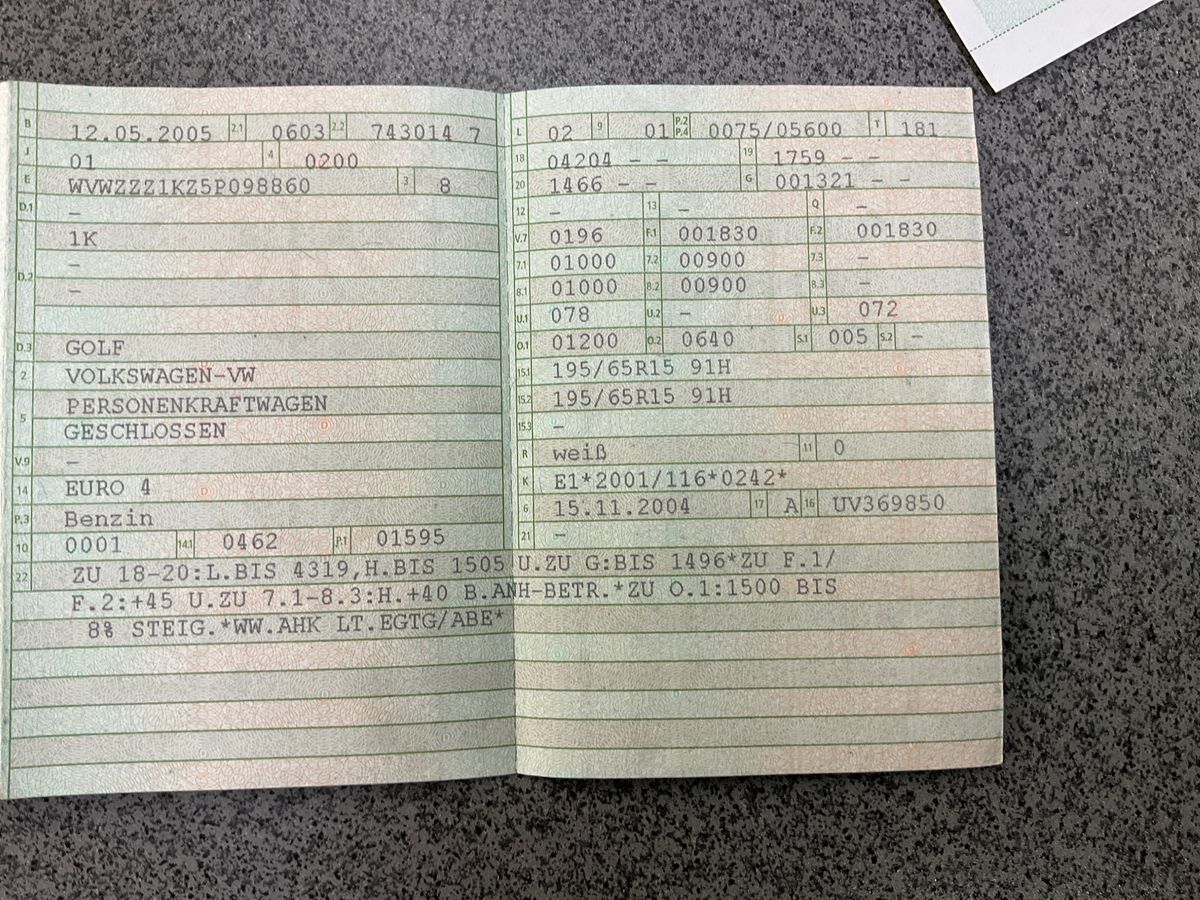 B 12.05.2005 2.1 0603 2.2 743014 7
J 01 4 0200
E WVWZZZ1KZ5P098860 3 8
D.1 –
1K
D.2 –
–
D.3 GOLF
2 VOLKSWAGEN-VW
5 PERSONENKRAFTWAGEN
GESCHLOSSEN
V.9 –
14 EURO 4
P.3 Benzin
10 0001 14.1 0462 P.1 01595
L 02 9 01 P.2 P.4 0075/05600 T 181
18 04204 – – 19 1759 – –
20 1466 – – G 001321 – –
12 – 13 – Q –
V.7 0196 F.1 001830 F.2 001830
7.1 01000 7.2 00900 7.3 –
8.1 01000 8.2 00900 8.3 –
U.1 078 U.2 – U.3 072
O.1 01200 O.2 0640 S.1 005 S.2 –
15.1 195/65R15 91H
15.2 195/65R15 91H
15.3 –
R weiß 11 0
K E1*2001/116*0242*
6 15.11.2004 17 A 16 UV369850
21 –
22 ZU 18-20:L.BIS 4319,H.BIS 1505 U.ZU G:BIS 1496*ZU F.1/
F.2:+45 U.ZU 7.1-8.3:H.+40 B.ANH-BETR.*ZU O.1:1500 BIS
8% STEIG.*WW.AHK LT.EGTG/ABE*